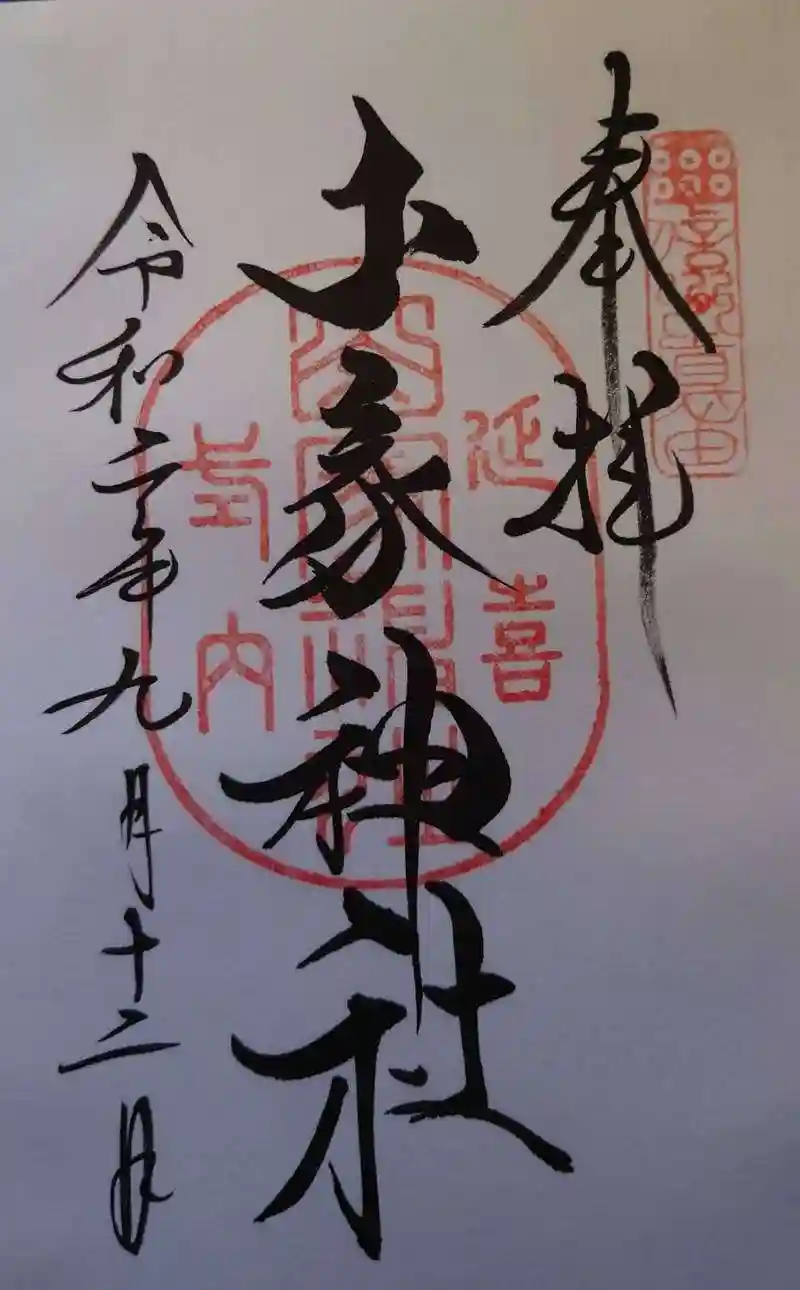 奉拝
山家神社
延喜
式内
令和二年九月十二日